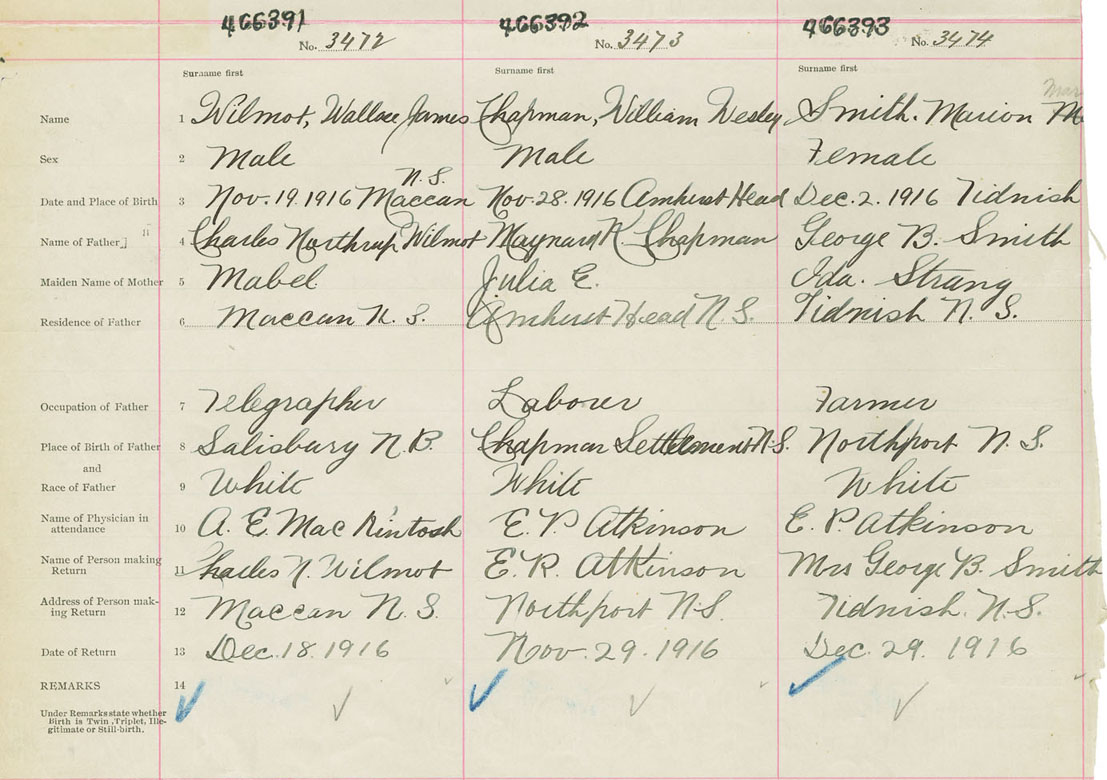 466391 466392 466393
No. 3472 No. 3473 No. 3474
Surname first Surname first Surname first
Name 1 Wilmot, Wallace James Chapman, William Wesley Smith. Marion M
Sex 2 Male Male Female
N.S.
Date and Place of Birth 3 Nov. 19. 1916 Maccan Nov. 28. 1916 Amherst Head Dec. 2. 1916 Tidnish
Name of Father 4 Charles Northrup Wilmot Maynard K. Chapman George B. Smith
Maiden Name of Mother 5 Mabel Julia E. Ida. Strang
Residence of Father 6 Maccan N. S. Amherst Head N. S. Tidnish N. S.
Occupation of Father 7 Telegrapher Laborer Farmer
Place of Birth of Father 8 Salisbury N.B. Chapman Settlement N.S. Northport N. S.
and
Race of Father 9 White White White
Name of Physician in
attendance 10 A. E. MacKintosh E. P. Atkinson E. P. Atkinson
Name of Person making
Return 11 Charles N. Wilmot E. R. Atkinson Mrs George B. Smith
Address of Person mak-
ing Return 12 Maccan N. S. Northport N.S. Tidnish. N.S.
Date of Return 13 Dec. 18. 1916 Nov. 29. 1916 Dec. 29. 1916
REMARKS 14
Under Remarks state whether
Birth is Twin, Triplet, Ille-
gitimate or Still-birth.